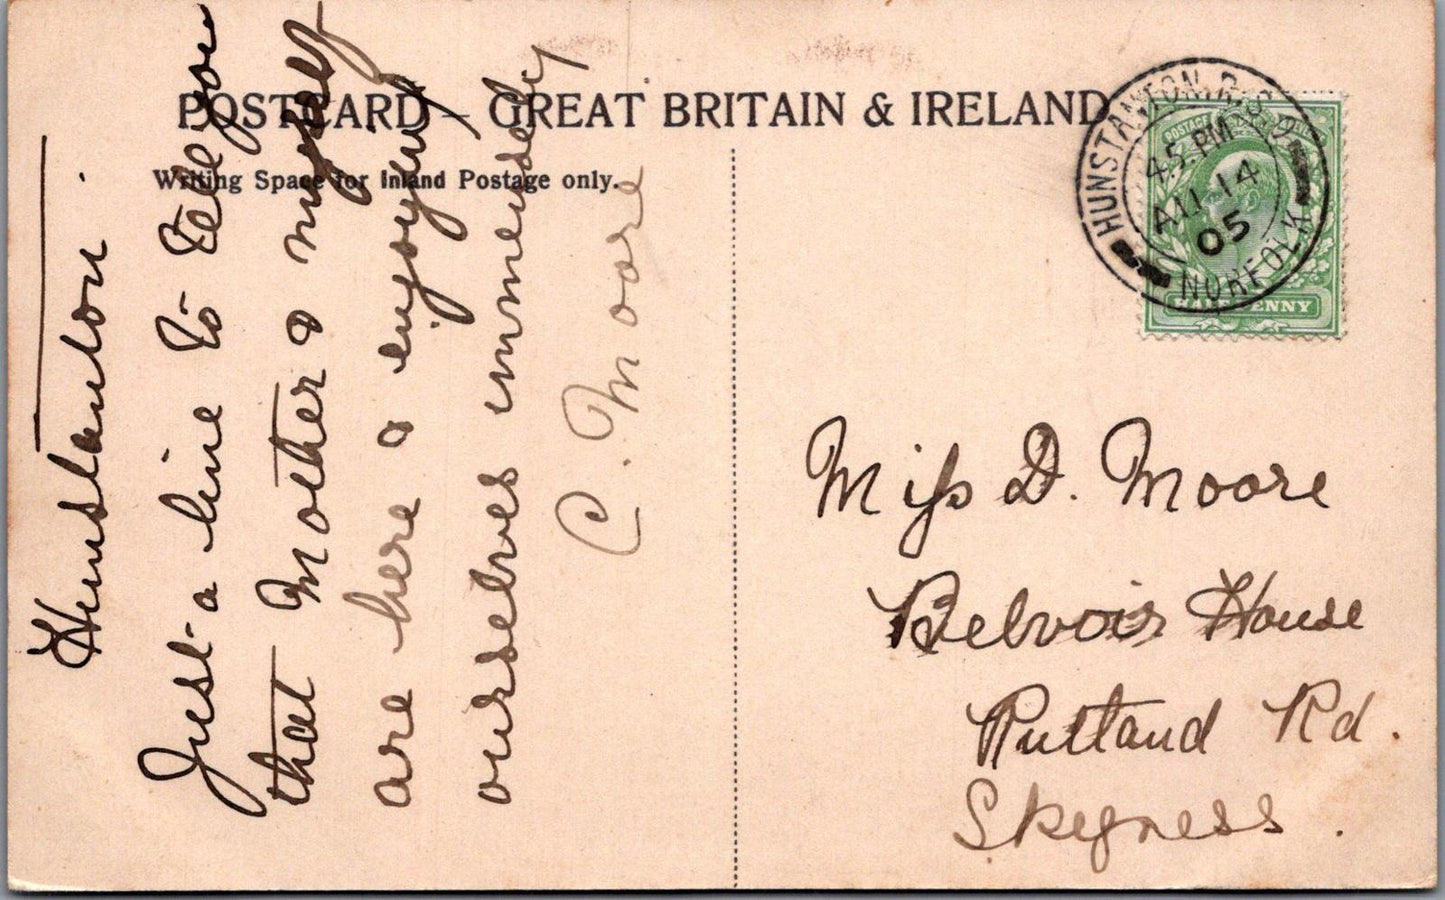 POSTCARD – GREAT BRITAIN & IRELAND
Writing Space for Inland Postage only.
Hunstanton.
Just a line to tell you
that Mother & myself
are here & enjoying
ourselves immensely
C. Moore
HUNSTANTON R.S.O
4.5.PM
AU 14
05
NORFOLK
POSTAGE
HALFPENNY
Miss D. Moore
Belvoir House
Rutland Rd.
Skegness.